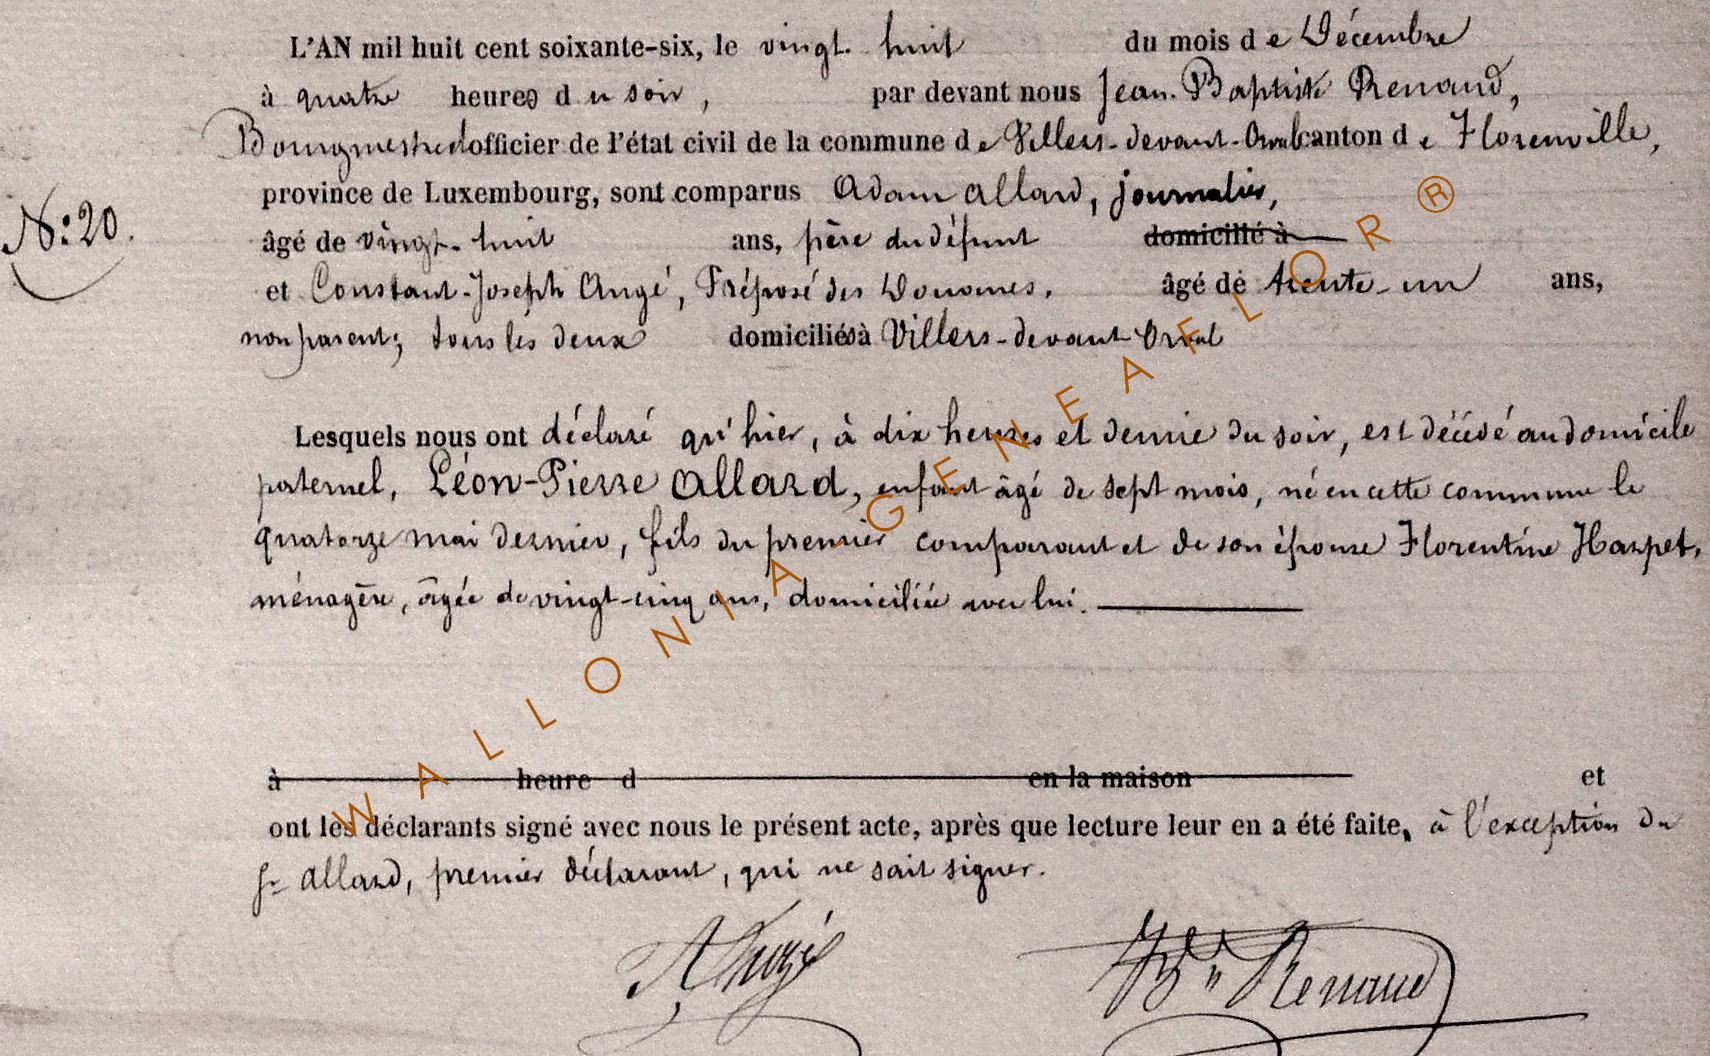 L'AN mil huit cent soixante-six, le vingt-huit du mois de Décembre
à quatre heures du soir, par devant nous Jean-Baptiste Renaud,
Bourgmestre officier de l'état civil de la commune de Villers-devant-Orval canton de Florenville,
province de Luxembourg, sont comparus Adam Allard, journalier,
N.º 20.
âgé de vingt-huit ans, père du défunt domicilié à
et Constant-Joseph Augé, Préposé des Douanes, âgé de trente-un ans,
non parent; tous les deux domiciliés à Villers-devant-Orval
Lesquels nous ont déclaré qu'hier, à dix heures et demie du soir, est décédé au domicile
paternel, Léon-Pierre Allard, enfant âgé de sept mois, né en cette commune le
quatorze mai dernier, fils du premier comparant et de son épouse Florentine Harpet,
ménagère, âgée de vingt-cinq ans, domiciliée avec lui.
à heure d en la maison et
ont les déclarants signé avec nous le présent acte, après que lecture leur en a été faite, à l'exception du
Sr Allard, premier déclarant, qui ne sait signer.
Augé
Renaud
WALLONIA GENEAFLOR ®